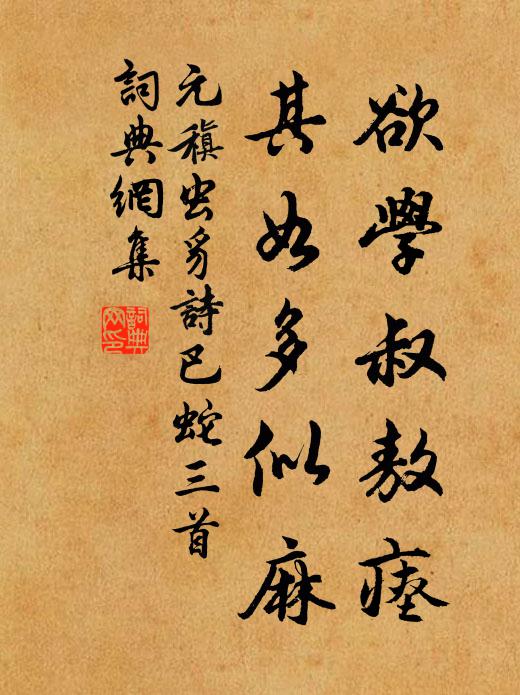 欲學叔敖瘞
其如多似麻
元稹虫豸詩巴蛇三首
詞典網集
詞典網印